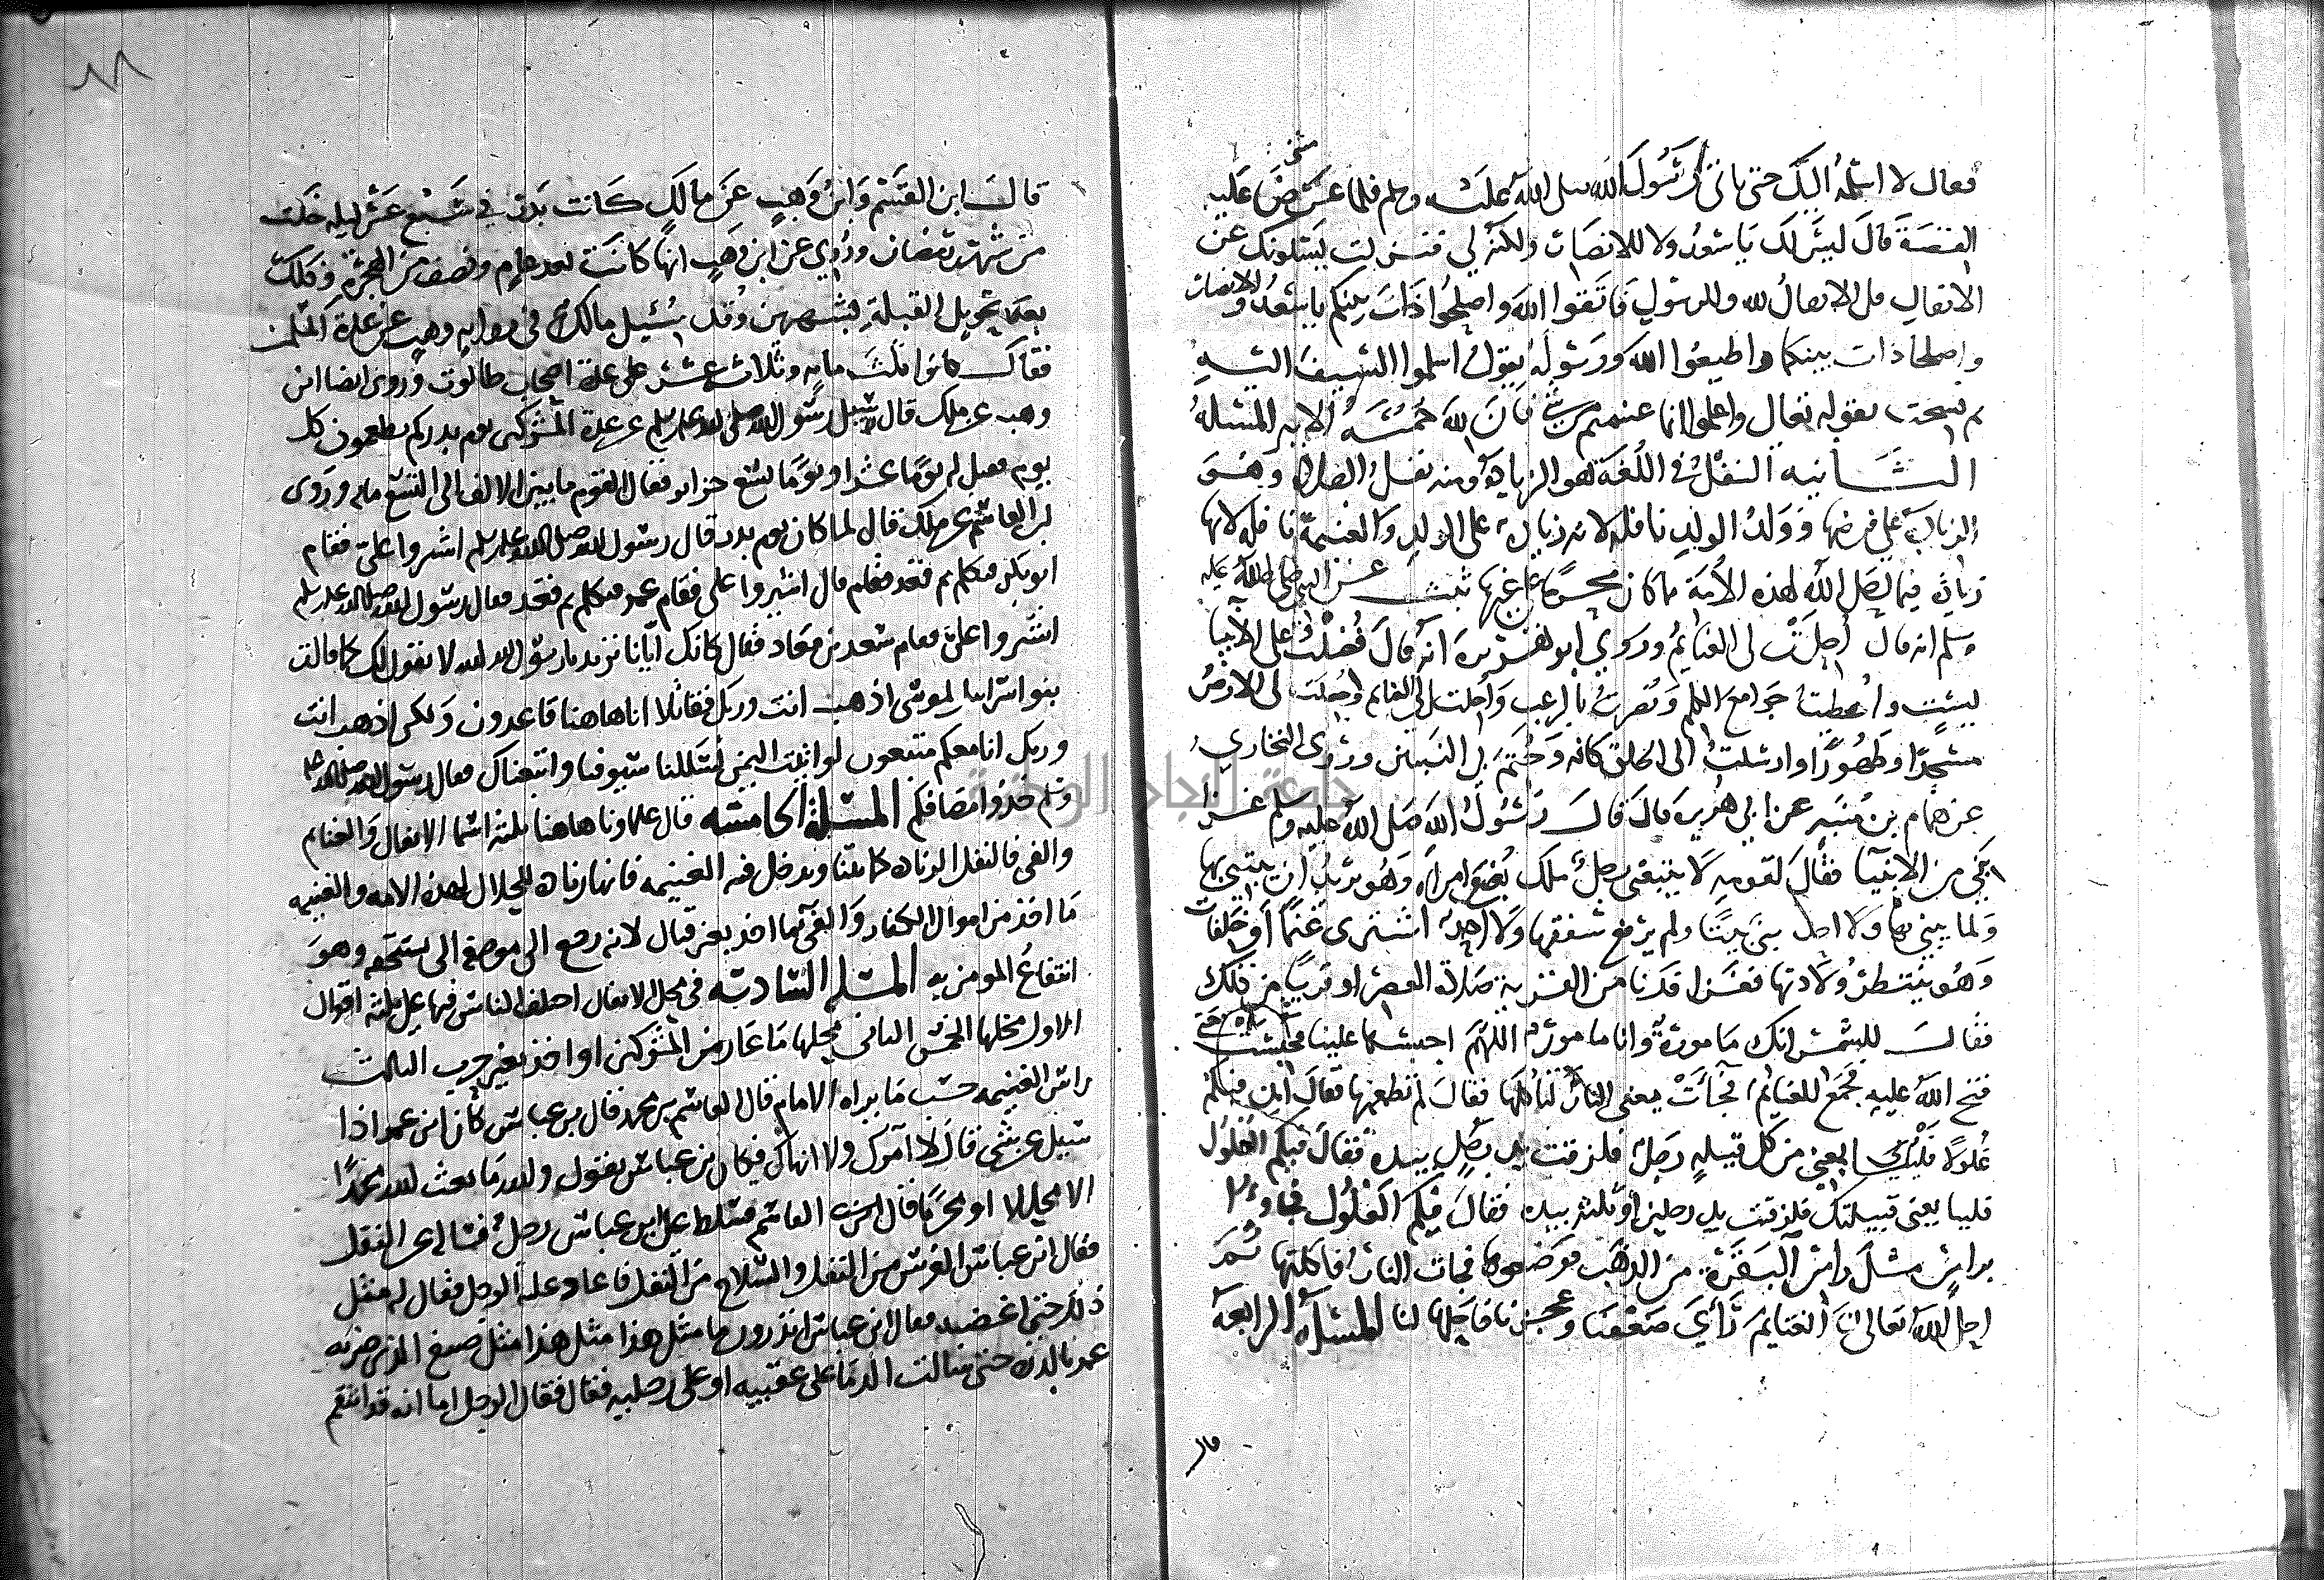 فقال لا اسلمه اليك حتى ياتي رسول الله صلى الله عليه وسلم فلما عرض عليه
القصة قال ليس لك يا سعد ولا للانصاري ولكنه لي فنزلت يسئلونك عن
الانفال قل الانفال لله وللرسول فاتقوا الله واصلحوا ذات بينكم يا سعد والانصاري
واصلحا ذات بينكما واطيعوا الله ورسوله يقول اسلموا السيف اليه
ثم نسخت بقوله تعالى واعلموا انما غنمتم من شي فان لله خمسه الاية المسئلة
الثانية النفل في اللغة هو الزيادة ومنه نفل الصلاة وهو
الزيادة على فرضها وولد الولد نافلة لانه زيادة على الولد والغنيمة نافلة لانها
زيادة فيما احل الله لهذه الامة مما كان محرما على غيرها ثبت عن النبي صلى الله عليه
وسلم انه قال احلت لي الغنايم وروي ابو هريرة انه قال فضلت على الانبيا
بست واعطيت جوامع الكلم ونصرت بالرعب واحلت لي الغنايم وجعلت لي الارض
مسجدا وطهورا وارسلت الى الخلق كافة وختم بي النبيين وروى البخاري
عن همام بن منبه عن ابي هريرة قال قال رسول الله صلى الله عليه وسلم غزا
نبي من الانبيا فقال لقومه لا يتبعني رجل ملك بضع امراة وهو يريد ان يبتني بها
ولما يبني بها ولا احد بنى بيتا ولم يرفع سقفها ولا احد اشترى غنما او خلفات
وهو ينتظر ولادتها فغزا فدنا من القرية صلاة العصر او قريبا من ذلك
فقال للشمس انك مامورة وانا مامور اللهم احبسها علينا فحبست حتى
فتح الله عليه فجمع الغنايم فجاءت يعني النار لتاكلها فقال لم تطعمها فقال ان فيكم
غلولا فليبايعني من كل قبيلة رجل فلزقت يد رجل بيده فقال فيكم الغلول
فليبايعني قبيلتك فلزقت يد رجلين او ثلثة بيده فقال فيكم الغلول فجاوا
براس مثل راس البقرة من الذهب فوضعوها فجات النار فاكلتها ثم
احل الله تعالى لنا الغنايم رأى ضعفنا وعجزنا فاحلها لنا المسئلة الرابعة
قال
قال ابن القسم وابن وهب عن مالك كانت بدر في سبع عشر ليلة خلت
من شهر رمضان وروي عن ابن وهب انها كانت بعد عام ونصف من الهجرة وذلك
بعد تحويل القبلة بشهرين وقد سئيل مالك في رواية وهب عن عدة المسلمين
فقال كانوا ثلث ماية وثلاث عشر على عدة اصحاب طالوت وروى ايضا ابن
وهب عن ملك قال سيل رسول الله صلى الله عليه وسلم عن عدة المشركين يوم بدر كم يطعمون كل
يوم فقيل له يوما عشرا ويوما تسع جزاير فقال القوم ما بين الالف الى التسع ماية وروى
ابن القاسم عن ملك قال لما كان يوم بدر قال رسول الله صلى الله عليه وسلم اشيروا علي فقام
ابو بكر فتكلم ثم قعد ثم قال اشيروا علي فقام عمر فتكلم ثم قعد فقال رسول الله صلى الله عليه وسلم
اشيروا علي فقام سعد بن معاذ فقال كانك ايانا تريد يا رسول الله لا نقول لك كما قالت
بنو اسرايل لموسى اذهب انت وربك فقاتلا انا هاهنا قاعدون ولكن اذهب انت
وربك انا معكم متبعون لو اتيت اليمن لسللنا سيوفنا واتبعناك فقال رسول الله صلى الله عليه
وسلم خذوا مصافكم المسئلة الخامسة قال علماونا هاهنا ثلثة اسما الانفال والغنايم
والفي فالنفل الزيادة كما بينا ويدخل فيه الغنيمة فانها زيادة الحلال لهذه الامة والغنيمة
ما اخذ من اموال الكفار والفي ما اخذ بغير قتال لانه رجع الى موضعه الذي يستحقه وهو
انتفاع المومن به المسئلة السادسة في محل الانفال اختلف الناس فيها على ثلثة اقوال
الاول محلها الخمس الثاني محلها ما عار من المشركين او اخذ بغير حرب الثالث
راس الغنيمة حسب ما يراه الامام قال القاسم بن محمد قال بن عباس كان ابن عمر اذا
سيل عن شي قال لا آمرك ولا انهاك فكان بن عباس يقول والله ما بعث الله محمدا
الا محللا او محرما قال القاسم فسلط على ابن عباس رجل فساله عن النفل
فقال ابن عباس الفرس من النفل والسلاح من النفل فاعاد عليه الرجل فقال له مثل
ذلك حتى اغضبه فقال ابن عباس اتدرون ما مثل هذا مثل هذا مثل صبيغ الذي ضربه
عمر بالدرة حتى سالت الدما على عقبيه او على رجليه فقال فقال الرجل اما انه قد انتقم